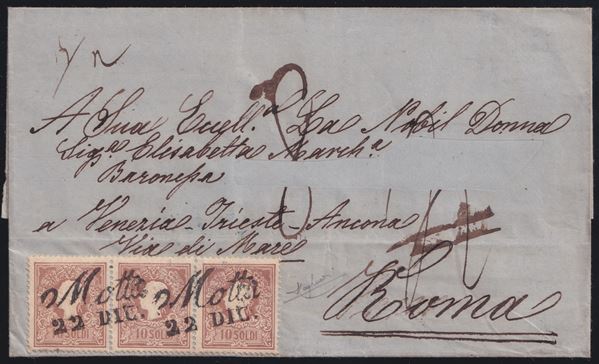 A Sua Eccell.za La Nobil Donna
Sig.a Elisabetta March.a
Baronessa
a Venezia - Trieste - Ancona
Via di Mare
Roma
Motta Motta
22 DIC. 22 DIC.
10 SOLDI 10 SOLDI 10 SOLDI